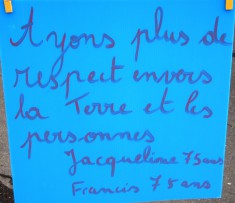 Ayons plus de
respect envers
la Terre et les
personnes
Jacqueline 75 ans
Francis 78 ans